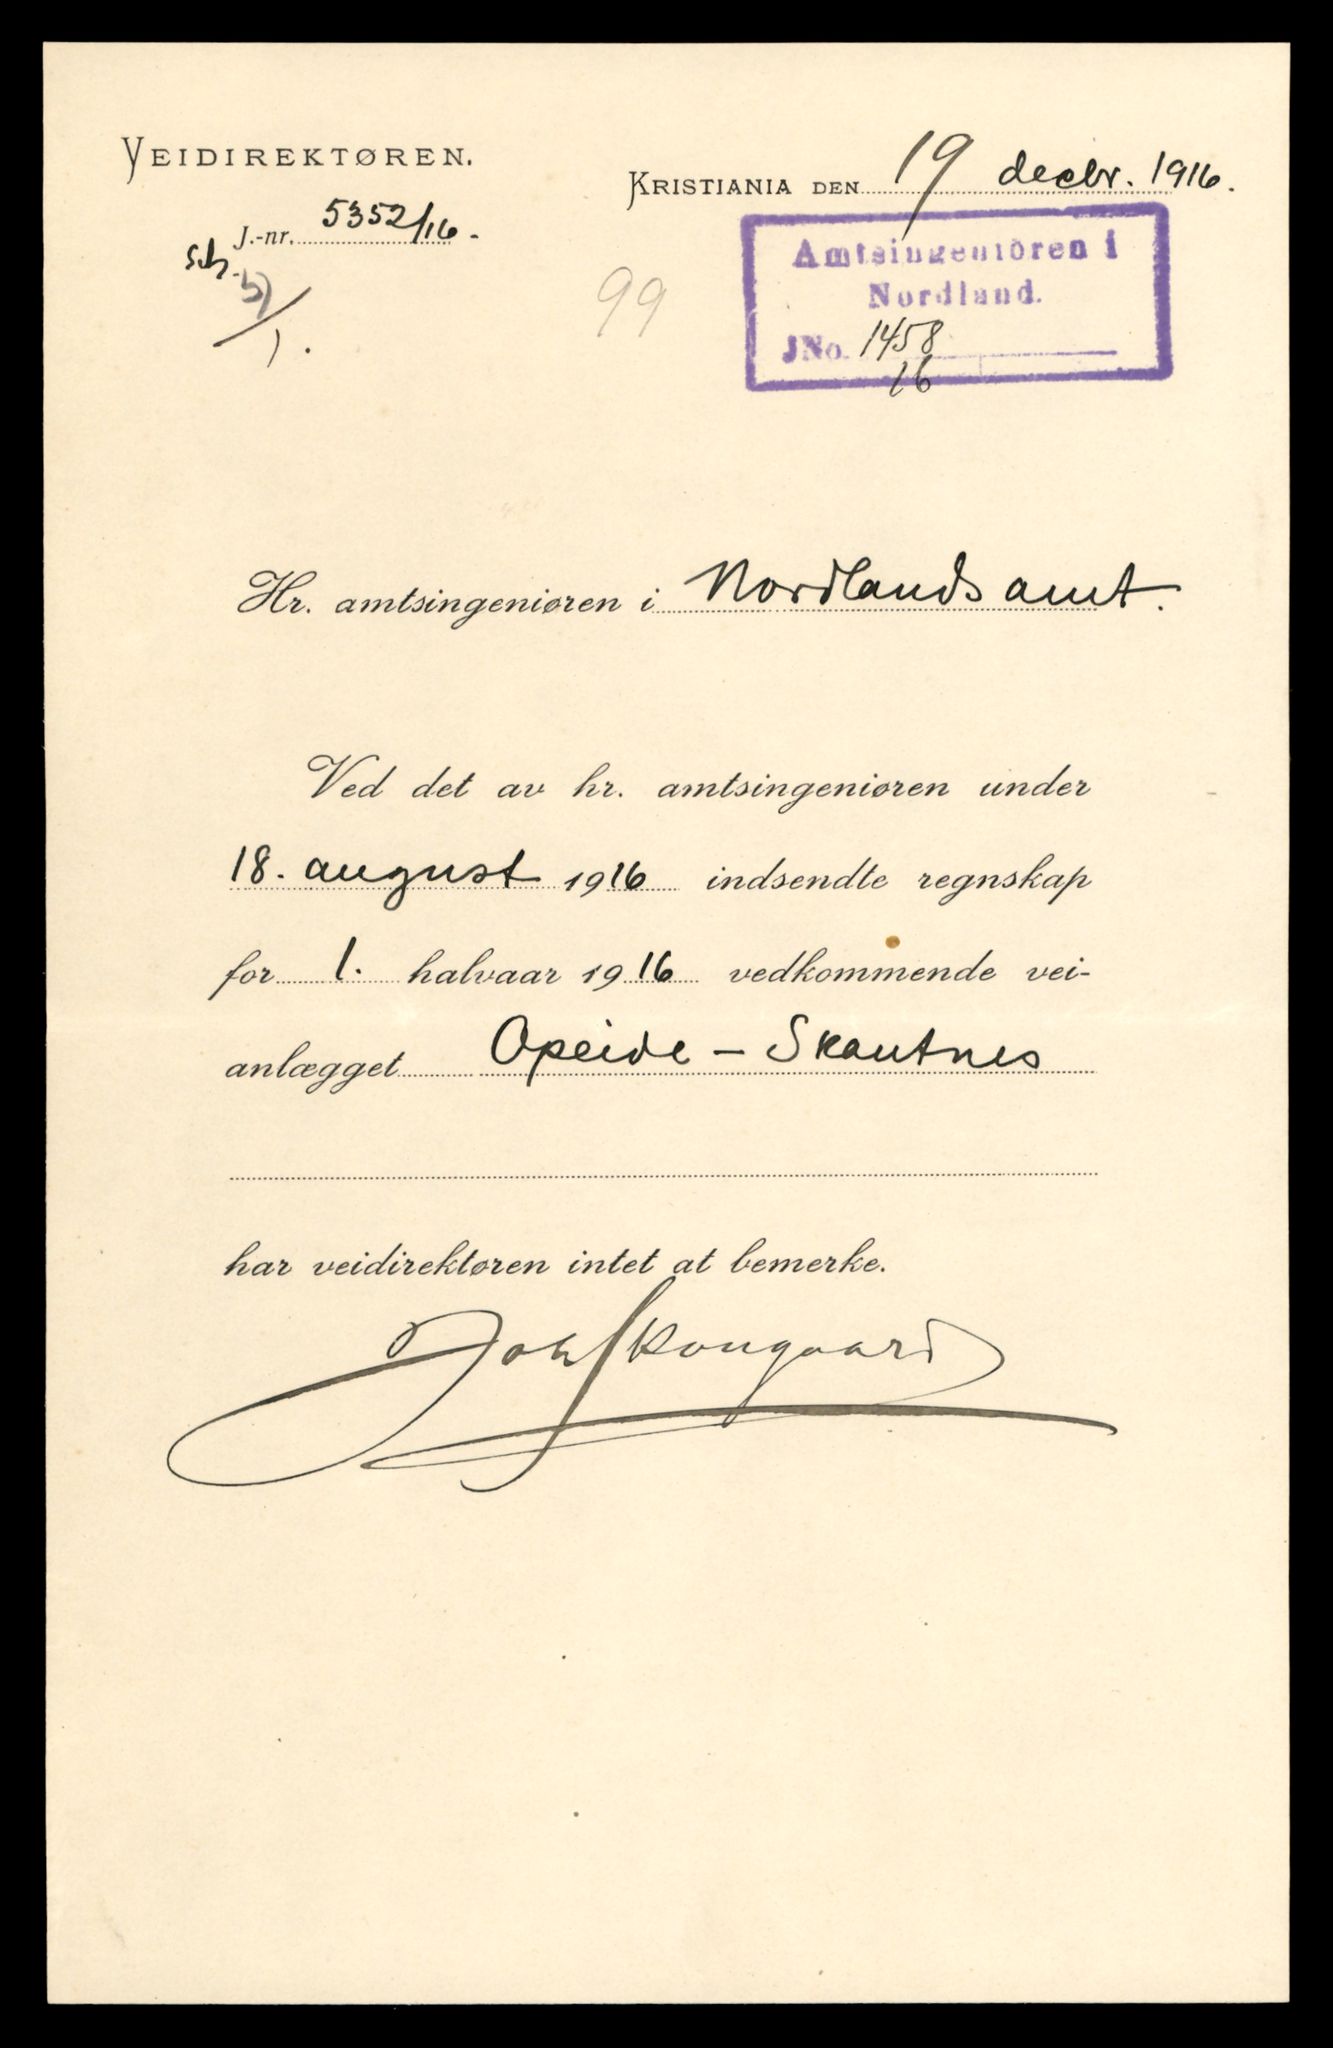 VEIDIREKTØREN.
KRISTIANIA DEN 19 decbr. 1916.
J.-nr. 5352/16.
Sch.
99
Amtsingeniören i
Nordland.
JNo. 1458
16
Hr. amtsingeniøren i Nordlands amt.
Ved det av hr. amtsingeniøren under
18. august 1916 indsendte regnskap
for 1. halvaar 1916 vedkommende vei-
anlægget Opeide – Skautnes
har veidirektøren intet at bemerke.
Joh Skougaard